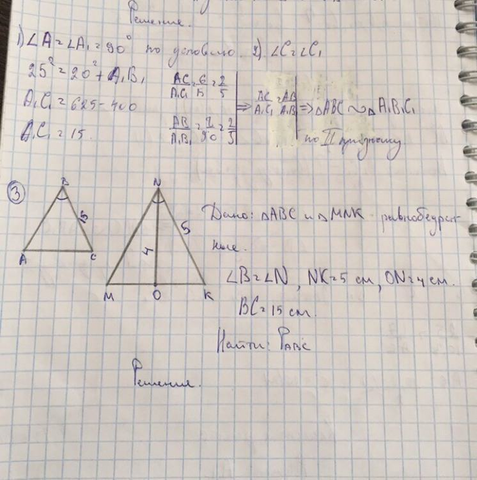 Решение.
1) ∠A = ∠A₁ = 90° по условию. 2) ∠C = ∠C₁
25² = 20² + A₁B₁
A₁C₁ = 625 - 400
A₁C₁ = 15.
AC/A₁C₁ = 6/15 = 2/5
AB/A₁B₁ = 2/5
⇒ AC/A₁C₁ = AB/A₁B₁ ⇒ △ABC ∾ △A₁B₁C₁
по II признаку
3
B
5
A
C
N
5
4
M
O
K
Дано: △ABC и △MNK - равнобедрен-
ные.
∠B = ∠N, NK = 5 см, ON = 4 см.
BC = 15 см.
Найти: P_ABC
Решение.